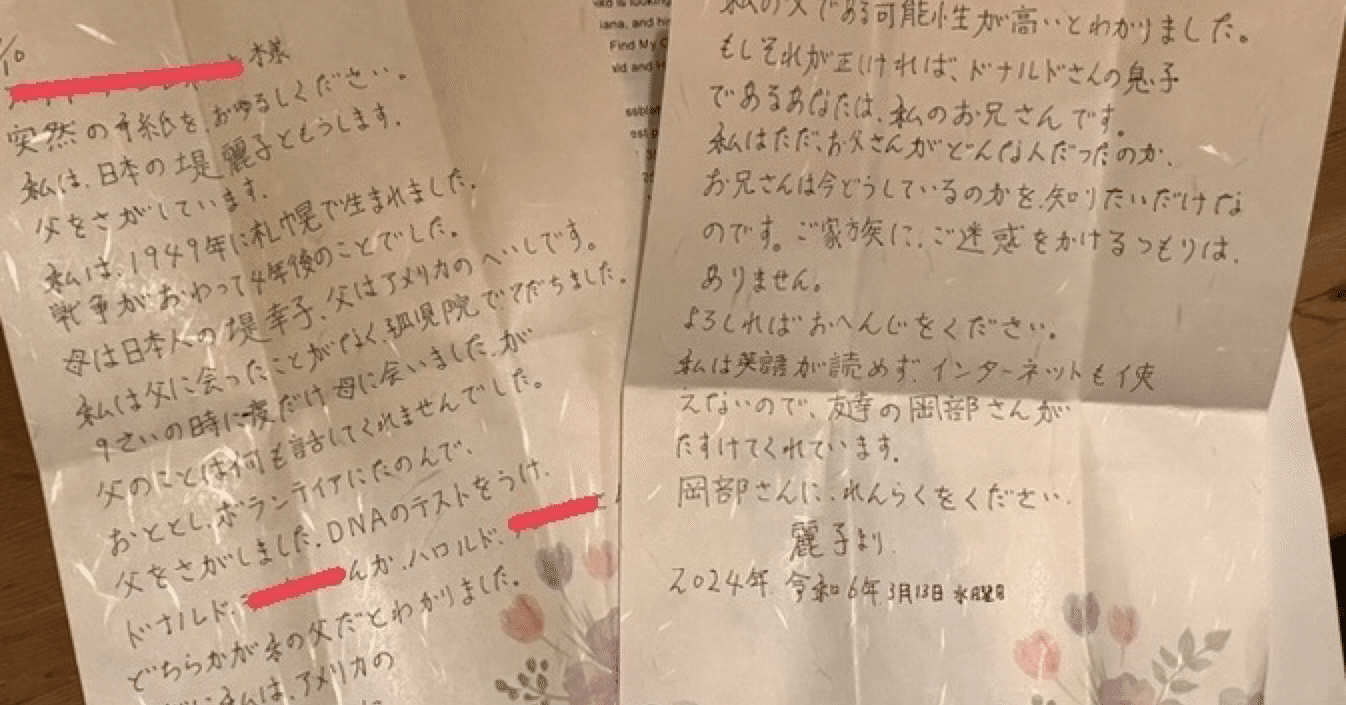 様
突然の手紙を、おゆるしください。
私は、日本の堤麗子ともうします。
父をさがしています。
私は、1949年に札幌で生まれました。
戦争がおわって4年後のことでした。
母は日本人の堤幸子、父はアメリカのへいしです。
私は父に会ったことがなく、孤児院でそだちました。
9さいの時に一度だけ母に会いましたが
父のことは何も話してくれませんでした。
おととし、ボランティアにたのんで、
父をさがしました。DNAのテストをうけ、
ドナルド、んか、ハロルド、
どちらかが私の父だとわかりました。
私は、アメリカの
私の父である可能性が高いとわかりました。
もしそれが正しければ、ドナルドさんの息子
であるあなたは、私のお兄さんです。
私はただ、お父さんがどんな人だったのか、
お兄さんは今どうしているのかを、知りたいだけな
のです。ご家族に、ご迷惑をかけるつもりは、
ありません。
よろしればおへんじをください。
私は英語が読めず、インターネットも使
えないので、友達の岡部さんが
たすけてくれています。
岡部さんに、れんらくをください。
麗子より。
2024年 令和6年3月13日 水曜日
iana, and his
Find My